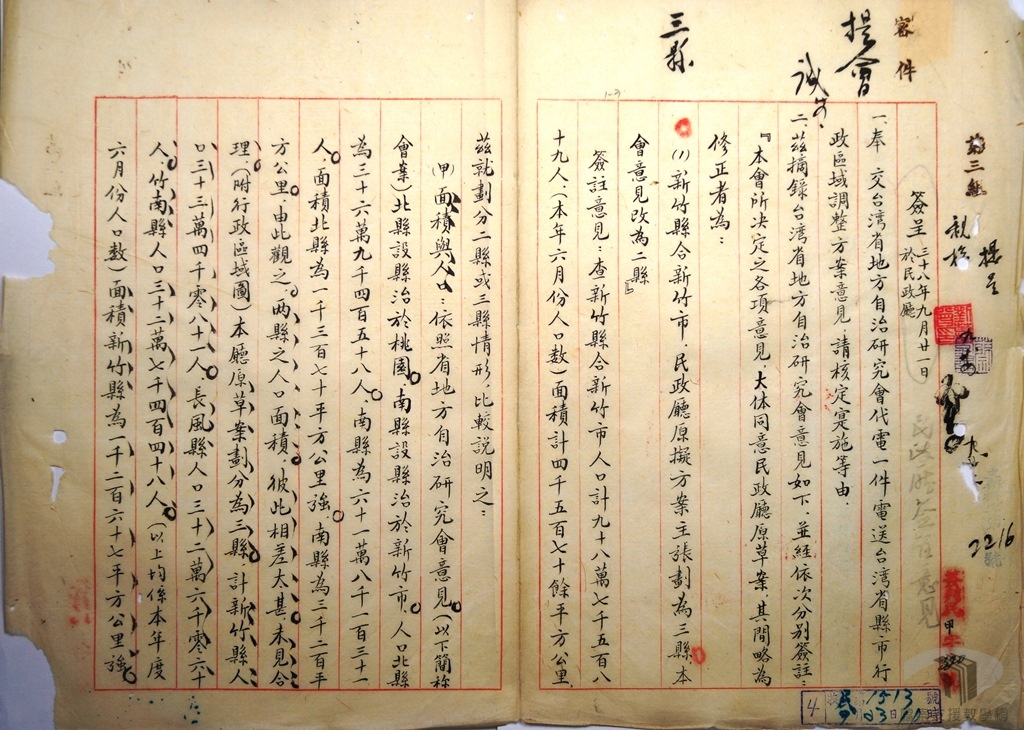 密件
提會
三縣
第三組
簽呈 三十八年九月廿一日
於民政廳
2216
一、奉 交台湾省地方自治研究會代電一件電送台湾省縣市行
政區域調整方案意見，請核定寔施等由。
二、茲摘錄台湾省地方自治研究會意見如下，並經依次分別簽註：
『本會所決定之各項意見，大体同意民政廳原草案，其間略為
修正者為：
(1)新竹縣合新竹市，民政廳原擬方案主張劃為三縣，本
會意見改為二縣』
簽註意見：查新竹縣合新竹市人口計九十八萬七千五百八
十九人，（本年六月份人口数）面積計四千五百七十餘平方公里，
茲就劃分二縣或三縣情形，比較説明之：
(甲)面積與人口：依照省地方自治研究會意見（以下簡称
會案）北縣設縣治於桃園，南縣設縣治於新竹市，人口北縣
為三十六萬九千四百五十八人，南縣為六十一萬八千一百三十一
人，面積北縣為一千三百七十平方公里強，南縣為三千二百平
方公里，由此觀之，两縣之人口面積，彼此相差太甚，未見合
理，（附行政區域圖）本廳原草案劃分為三縣，計新竹縣人
口三十三萬四千零八十一人，長風縣人口三十二萬六千零六十
人，竹南縣人口三十二萬七千四百四十八人，（以上均係本年度
六月份人口数）面積新竹縣為一千二百六十七平方公里強，
收 1513 號
4